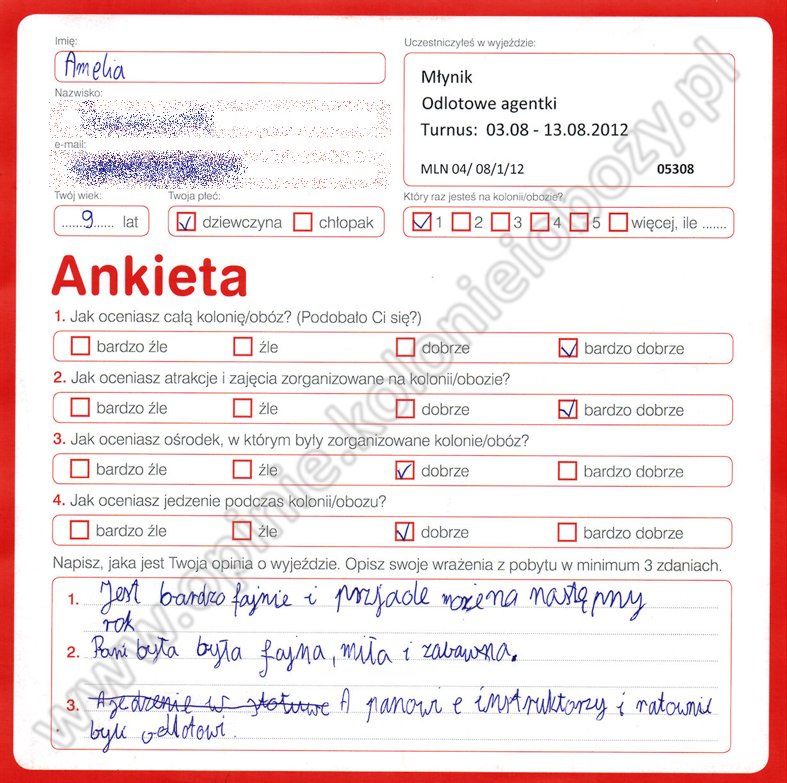 Imię:
Amelia
Nazwisko:
e-mail:
Twój wiek:
9 lat
Twoja płeć:
dziewczyna chłopak
Uczestniczyłeś w wyjeździe:
Młynik
Odlotowe agentki
Turnus: 03.08 - 13.08.2012
MLN 04/ 08/1/12 05308
Który raz jesteś na kolonii/obozie?
1 2 3 4 5 więcej, ile .......
Ankieta
1. Jak oceniasz całą kolonię/obóz? (Podobało Ci się?)
bardzo źle źle dobrze bardzo dobrze
2. Jak oceniasz atrakcje i zajęcia zorganizowane na kolonii/obozie?
bardzo źle źle dobrze bardzo dobrze
3. Jak oceniasz ośrodek, w którym były zorganizowane kolonie/obóz?
bardzo źle źle dobrze bardzo dobrze
4. Jak oceniasz jedzenie podczas kolonii/obozu?
bardzo źle źle dobrze bardzo dobrze
Napisz, jaka jest Twoja opinia o wyjeździe. Opisz swoje wrażenia z pobytu w minimum 3 zdaniach.
1. Jest bardzo fajnie i przjade możena następny
rok
2. Pani była była fajna, miła i zabawna.
3. A panowi e instruktorzy i ratownik
byli odlotowi.
www.opinie.kolonieiobozy.pl